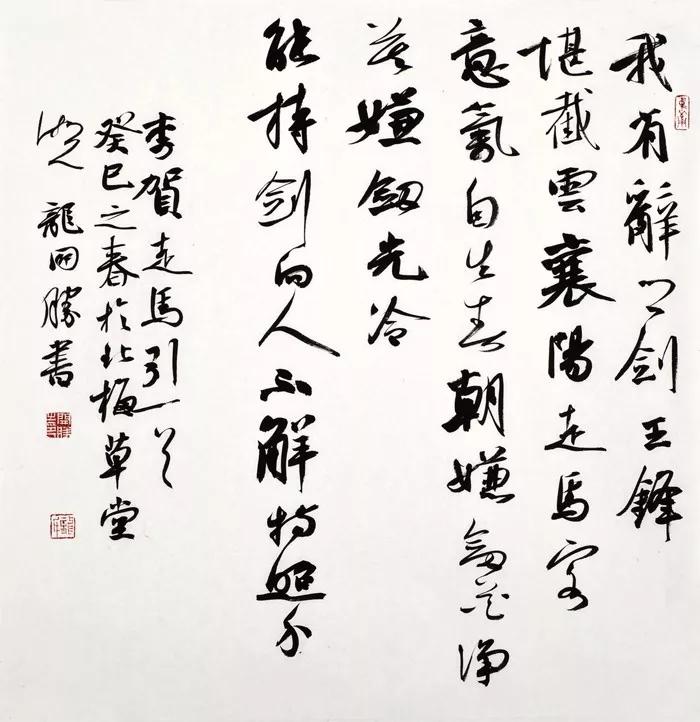 我有辭乡剑玉鋒
堪截雲襄陽走馬客
意氣自生春朝嫌劍花净
暮嫌劍光冷
能持剑向人不解持照身
李賀走馬引一首
癸巳之春於北梅草堂
龍開勝書